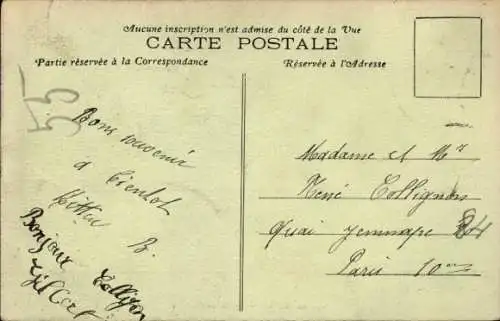 Aucune inscription n'est admise du côté de la Vue
CARTE POSTALE
Partie réservée à la Correspondance
Réservée à l'Adresse
55
Bons souvenir
a bientot
B.
Bonjour Collignon
Gilbert
Madame et Mr
René Collignon
Quai Jemmape 84
Paris 10me